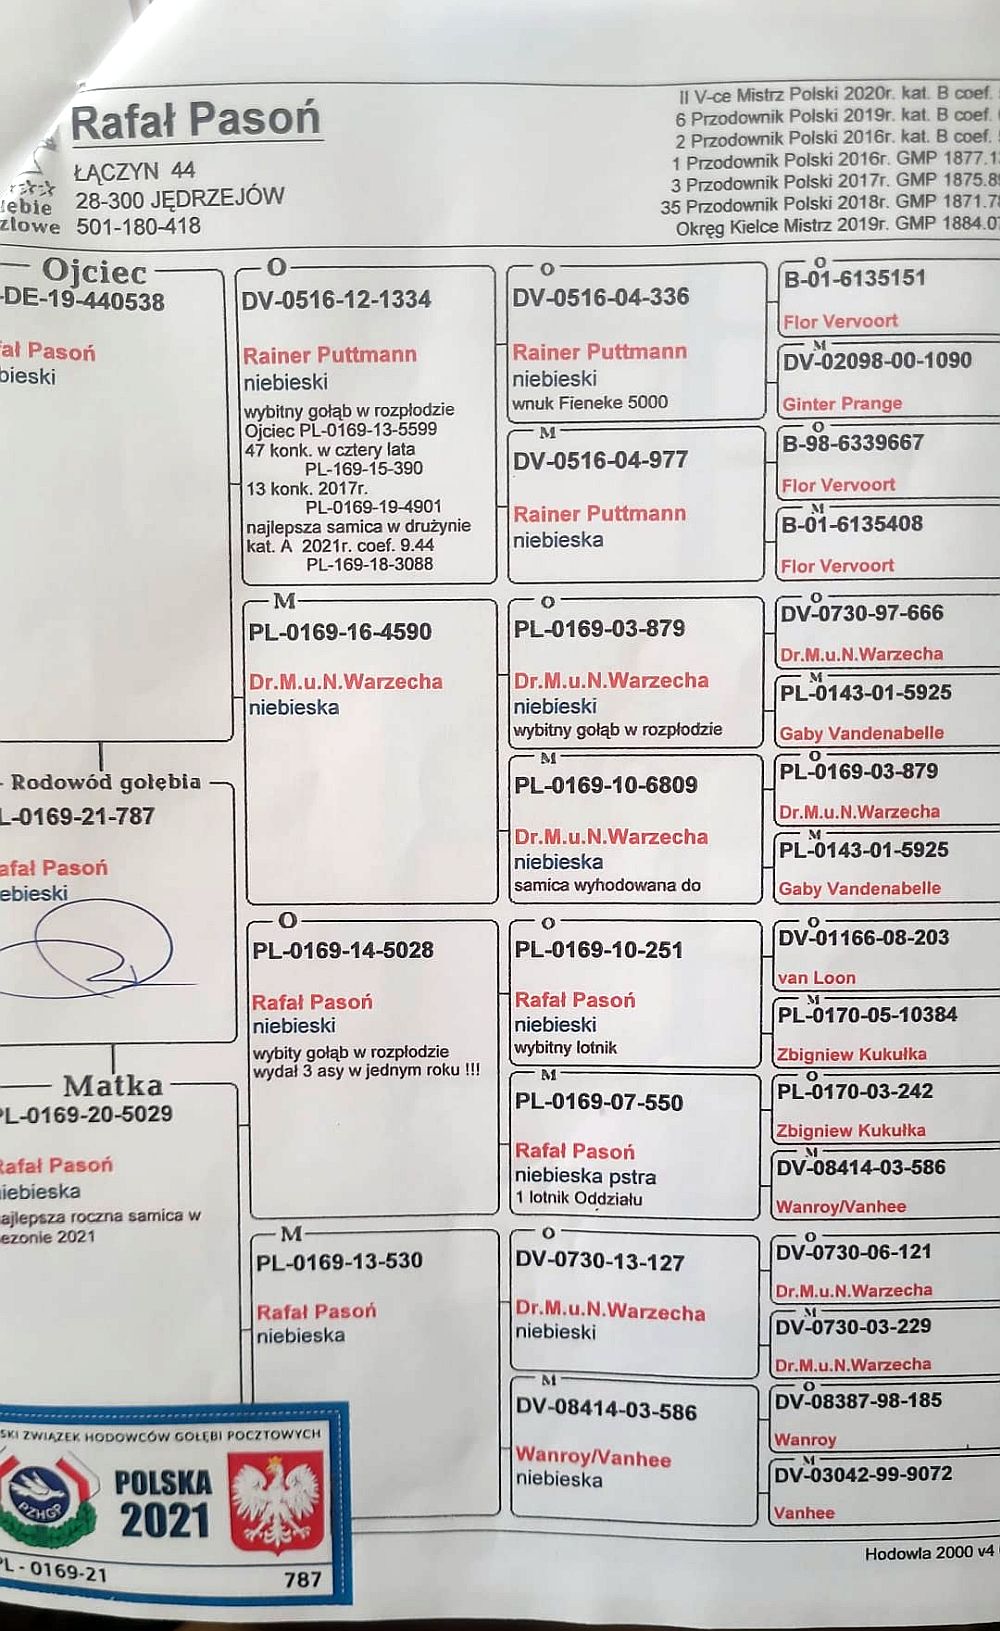 Rafał Pasoń
ŁĄCZYN 44
28-300 JĘDRZEJÓW
501-180-418
ebie
złowe
II V-ce Mistrz Polski 2020r. kat. B coef.
6 Przodownik Polski 2019r. kat. B coef.
2 Przodownik Polski 2016r. kat. B coef.
1 Przodownik Polski 2016r. GMP 1877.1
3 Przodownik Polski 2017r. GMP 1875.8
35 Przodownik Polski 2018r. GMP 1871.78
Okręg Kielce Mistrz 2019r. GMP 1884.07
Ojciec
-DE-19-440538
fał Pasoń
bieski
Rodowód gołębia
L-0169-21-787
afał Pasoń
ebieski
Matka
PL-0169-20-5029
Rafał Pasoń
iebieska
ajlepsza roczna samica w
ezonie 2021
O
DV-0516-12-1334
Rainer Puttmann
niebieski
wybitny gołąb w rozpłodzie
Ojciec PL-0169-13-5599
47 konk. w cztery lata
PL-169-15-390
13 konk. 2017r.
PL-0169-19-4901
najlepsza samica w drużynie
kat. A 2021r. coef. 9.44
PL-169-18-3088
M
PL-0169-16-4590
Dr.M.u.N.Warzecha
niebieska
O
PL-0169-14-5028
Rafał Pasoń
niebieski
wybity gołąb w rozpłodzie
wydał 3 asy w jednym roku !!!
M
PL-0169-13-530
Rafał Pasoń
niebieska
O
DV-0516-04-336
Rainer Puttmann
niebieski
wnuk Fieneke 5000
M
DV-0516-04-977
Rainer Puttmann
niebieska
O
PL-0169-03-879
Dr.M.u.N.Warzecha
niebieski
wybitny gołąb w rozpłodzie
M
PL-0169-10-6809
Dr.M.u.N.Warzecha
niebieska
samica wyhodowana do
O
PL-0169-10-251
Rafał Pasoń
niebieski
wybitny lotnik
M
PL-0169-07-550
Rafał Pasoń
niebieska pstra
1 lotnik Oddziału
O
DV-0730-13-127
Dr.M.u.N.Warzecha
niebieski
M
DV-08414-03-586
Wanroy/Vanhee
niebieska
O
B-01-6135151
Flor Vervoort
M
DV-02098-00-1090
Ginter Prange
O
B-98-6339667
Flor Vervoort
M
B-01-6135408
Flor Vervoort
O
DV-0730-97-666
Dr.M.u.N.Warzecha
M
PL-0143-01-5925
Gaby Vandenabelle
O
PL-0169-03-879
Dr.M.u.N.Warzecha
M
PL-0143-01-5925
Gaby Vandenabelle
O
DV-01166-08-203
van Loon
M
PL-0170-05-10384
Zbigniew Kukułka
O
PL-0170-03-242
Zbigniew Kukułka
M
DV-08414-03-586
Wanroy/Vanhee
O
DV-0730-06-121
Dr.M.u.N.Warzecha
M
DV-0730-03-229
Dr.M.u.N.Warzecha
O
DV-08387-98-185
Wanroy
M
DV-03042-99-9072
Vanhee
SKI ZWIĄZEK HODOWCÓW GOŁĘBI POCZTOWYCH
PZHGP
POLSKA
2021
PL - 0169-21
787
Hodowla 2000 v4